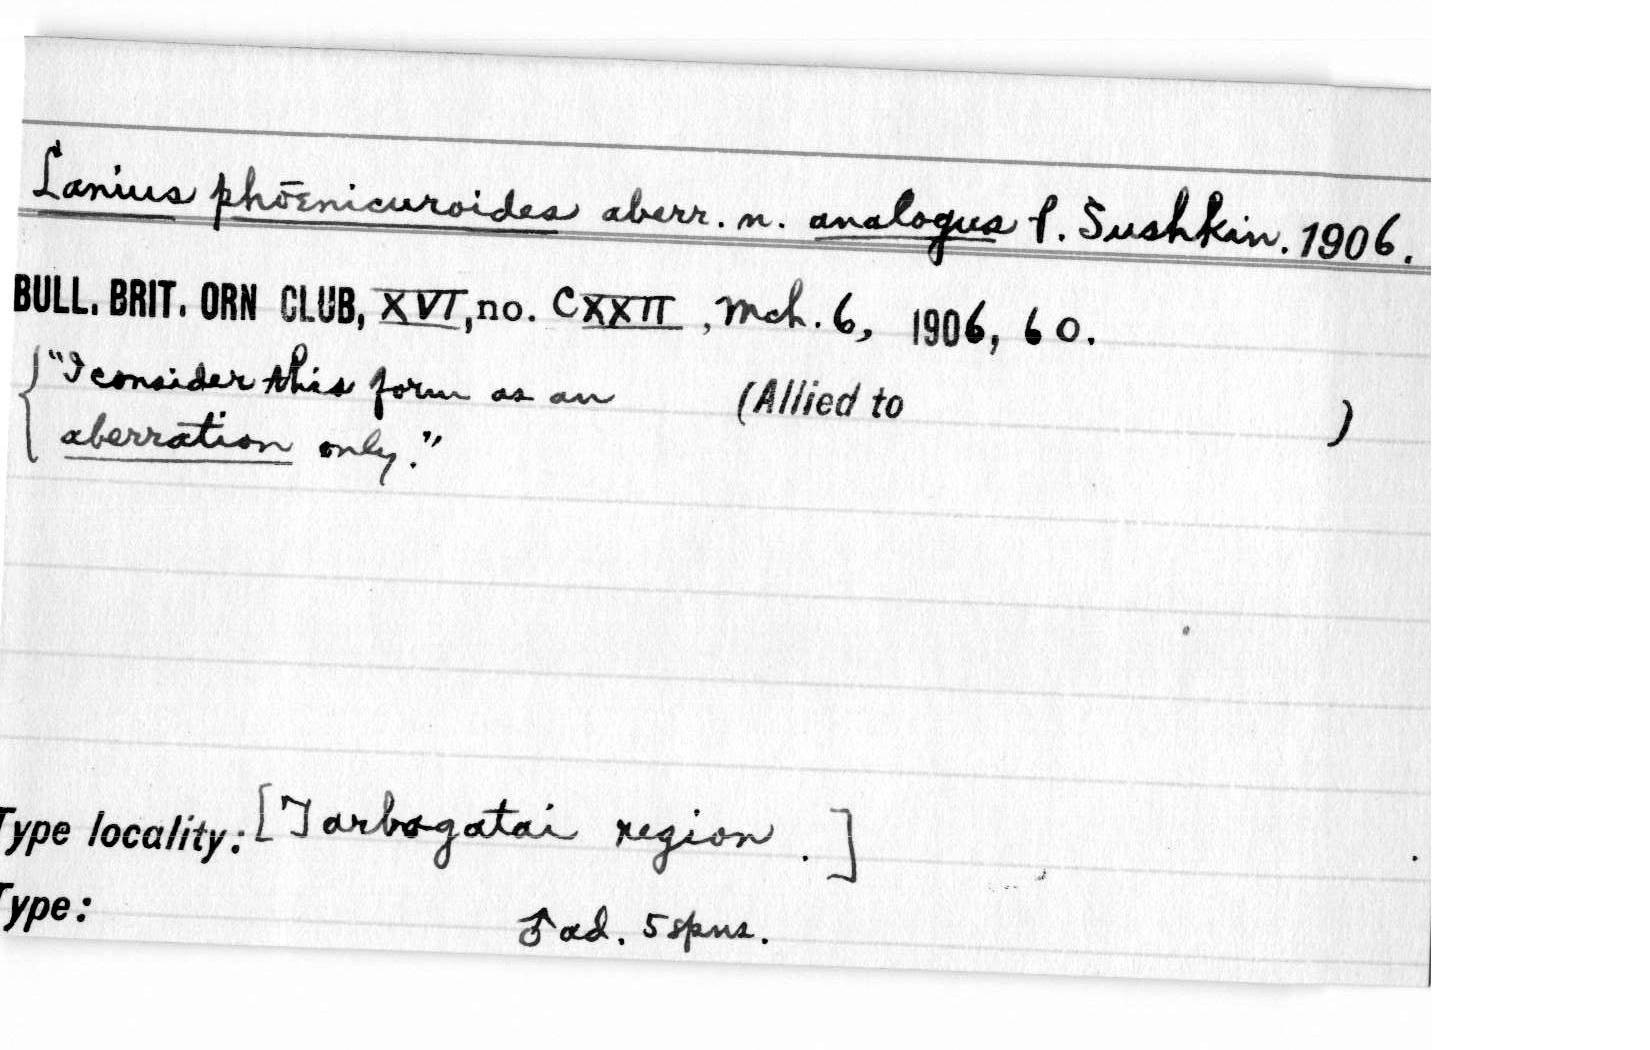 Lanius phœnicuroides aberr. n. analogus P. Sushkin. 1906.
BULL. BRIT. ORN CLUB, XVI, no. CXXII, Mch. 6, 1906, 60.
"I consider this form as an (Allied to )
aberration only."
Type locality: [Tarbagatai region.]
Type: ♂ ad. 5 spns.